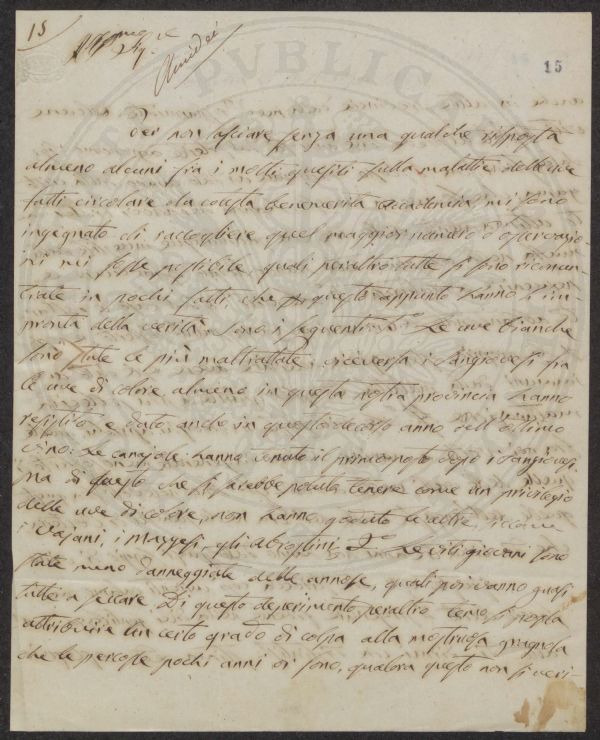 15
Amidei
15
PVBLIC
Per non lasciare senza una qualche risposta
almeno alcuni fra i molti quesiti sulla malattia delle uve
fatti circolare da cotesta benemerita Accademia, mi sono
ingegnato di raccogliere quel maggior numero d'osservazio-
ni mi fosse possibile quali peraltro tutte si sono riconcen-
trate in pochi fatti, che per questo appunto hanno l'im-
pronta della verità. Sono i seguenti. 1.o Le uve bianche
sono state le più maltrattate; viceversa i Sangiovesi fra
le uve di colore almeno in questa nostra provincia hanno
resistito, e dato anche in questo decorso anno dell'ottimo
vino: Le canajole hanno tenuto il primo posto dopo i Sangiovesi,
ma di questo che si sarebbe potuto tenere come un privilegio
delle uve di colore, non hanno goduto le altre, siccome
i Vajani, i Mazzesi, gli Abrostini. 2.o Le viti giovani sono
state meno danneggiate delle annose, quali poi vanno quasi
tutte a seccare. Di questo deperimento peraltro temo si possa
attribuire un certo grado di colpa alla mostruosa gragnola
che le percosse pochi anni or sono, qualora questo non si veri-